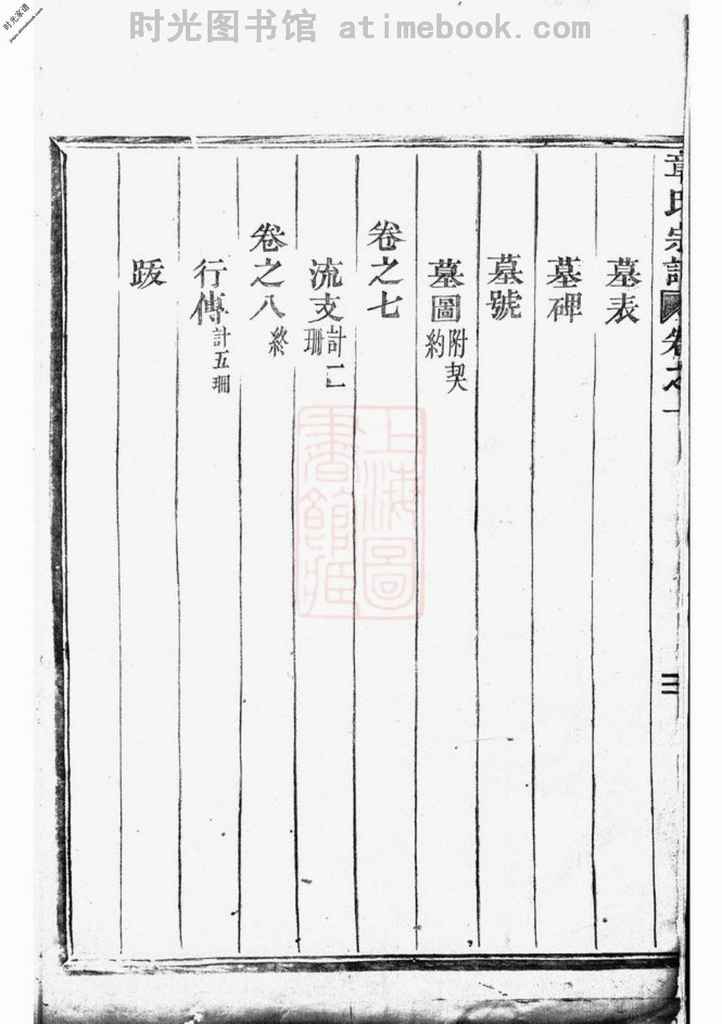 时光图书馆 atimebook.com
时光家谱
www.atimebook.com
章氏宗譜 卷之一
三
墓表
墓碑
墓號
墓圖附契約
卷之七
流支計二珊
卷之八終
行傳計五珊
跋
上海圖書館藏